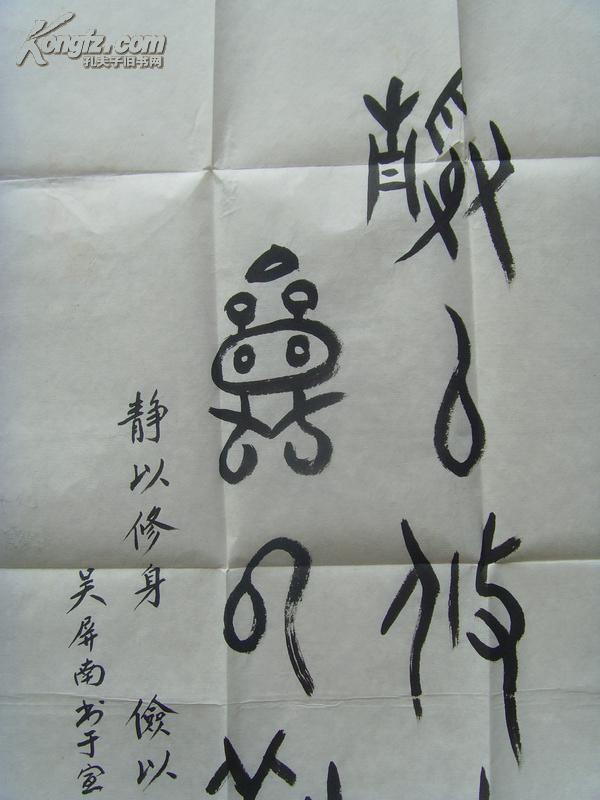 Kongfz.com
孔夫子旧书网
靜以攸
儉以
静以修身 儉以
吴屏南书于宣